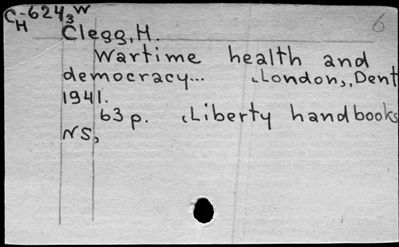 C-624₃W
H
6
Clegg, H.
Wartime health and
democracy... ‹London,, Dent
1941.
63 p. ‹Liberty handbooks
NS,